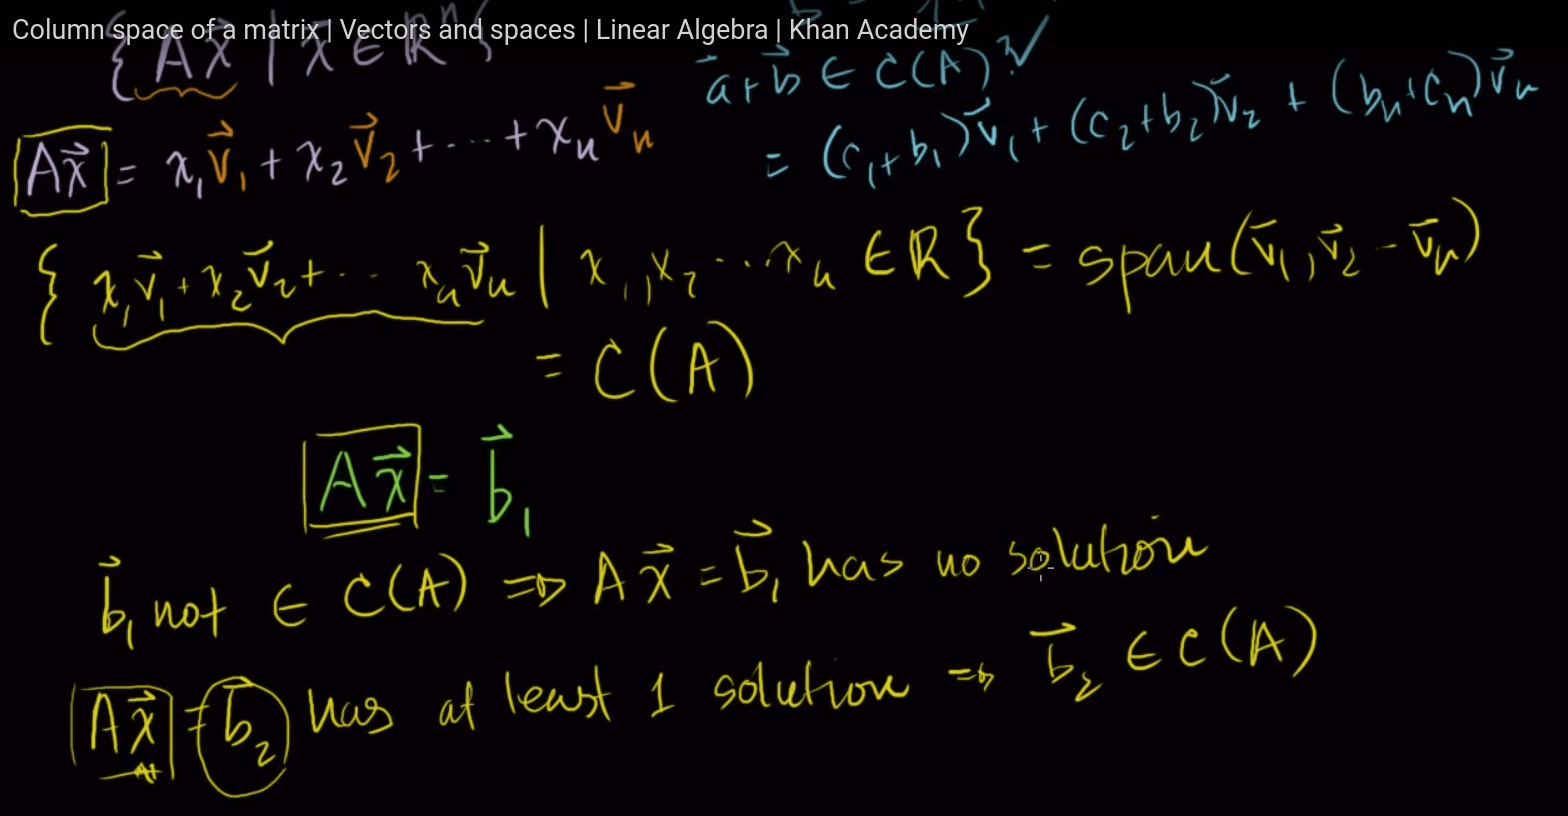 Column space of a matrix | Vectors and spaces | Linear Algebra | Khan Academy
{ Ax⃗ | x⃗ ∈ ℝⁿ }
a⃗ + b⃗ ∈ C(A)? ✓
Ax⃗ = x₁v⃗₁ + x₂v⃗₂ + ... + xₙv⃗ₙ
= (c₁+b₁)v⃗₁ + (c₂+b₂)v⃗₂ + (bₙ+cₙ)v⃗ₙ
{ x₁v⃗₁ + x₂v⃗₂ + ... xₙv⃗ₙ | x₁, x₂ ... xₙ ∈ ℝ } = span(v⃗₁, v⃗₂ - v⃗ₙ)
= C(A)
Ax⃗ = b⃗₁
b⃗₁ not ∈ C(A) ⇒ Ax⃗ = b⃗₁ has no solution
Ax⃗ = b⃗₂ has at least 1 solution ⇒ b⃗₂ ∈ C(A)